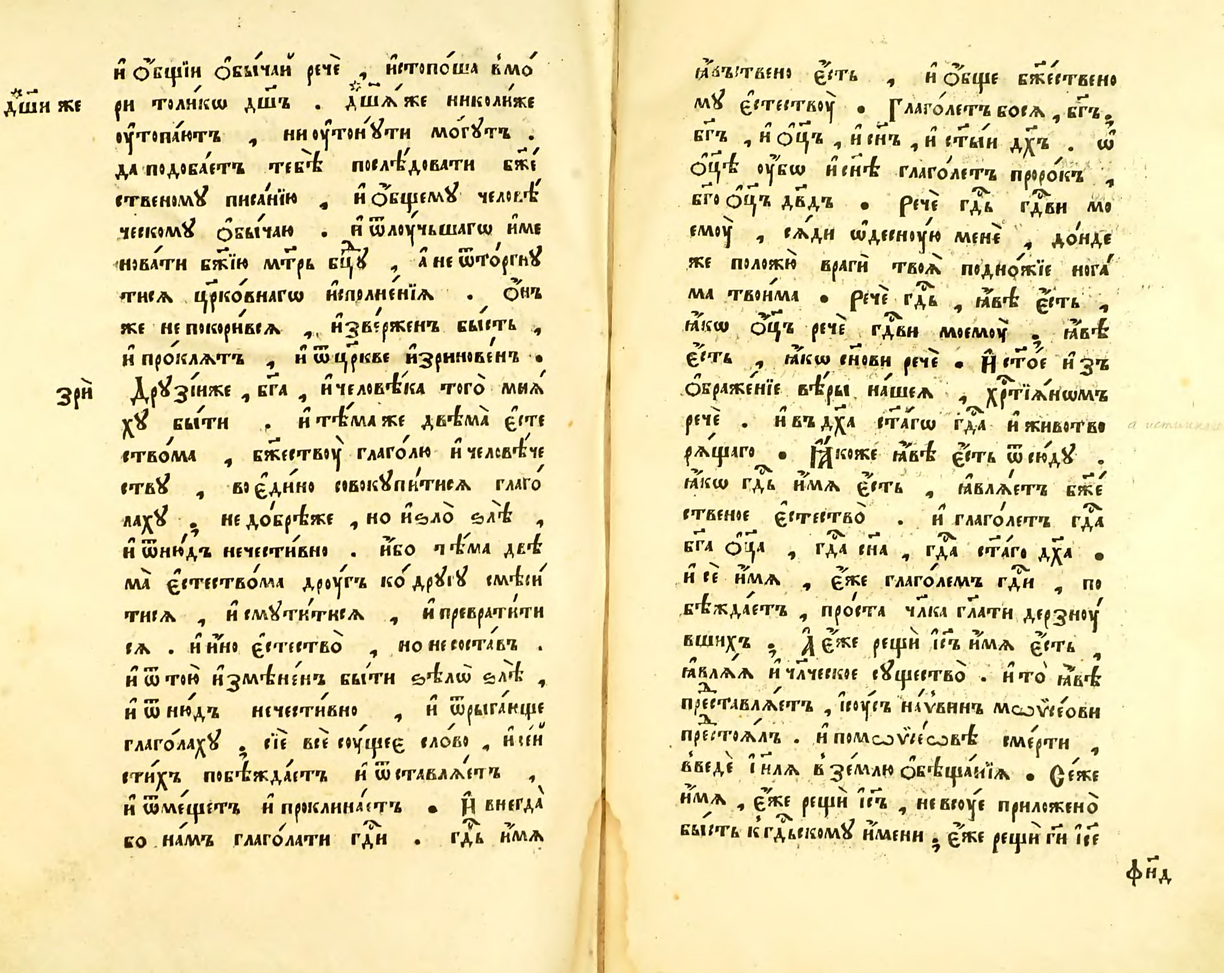 и҆ О҆́бщїи О҆бы́чаи речѐ , и҆стопо́ша вмо́
дш҃и же
ри толи́кѡ дш҃ъ . дш҃ѧ́ же николи́же
ᲂу҆топа́ютъ , ни ᲂу҆тонꙋ́ти мо́гꙋтъ .
да подоба́етъ тебѣ̀ послѣ́довати бж҃е́
ственомꙋ писа́нїю , и҆ О҆́бщемꙋ человѣ́
ческомꙋ О҆бы́чаю . и҆ ѿлоу́чьшагѡ и҆ме
нова́ти бж҃їю мт҃рь бцⷣꙋ , а҆ не ѿто́ргнꙋ
тисѧ цр҃ко́внагѡ и҆сполне́нїѧ . О҆́нъ
же не покори́всѧ , и҆зве́рженъ бы́сть ,
и҆ про́клѧтъ , и҆ ѿ цр҃кве и҆зринове́нъ .
зрѝ
Дрꙋзі́иже , бг҃а , и҆ человѣ́ка того̀ мнѧ́
хꙋ бы́ти . и҆ тѣ́ма же двѣма̀ є҆сте
ство́ма , бж҃ествоу̀ глаго́лю и҆ человѣ́че
ствꙋ , во є҆ди́но совокꙋпи́тисѧ глаго́
лахꙋ ; не до́брѣже , но и҆ ѕло̀ ѕлѣ̀ ,
и҆ ѿню́дъ нечести́вно . и҆́бо тѣ́ма двѣ
ма̀ є҆стество́ма дроу́гъ ко дрꙋ́гꙋ смѣси́
тисѧ , и҆ смꙋти́тисѧ , и҆ преврати́ти
сѧ . и҆ и҆́но є҆стество̀ , но не соста́въ .
и҆ ѿ тою̀ и҆змѣне́нъ бы́ти ѕѣлѡ̀ ѕлѣ̀ ,
и҆ ѿню́дъ нечести́вно , и҆ ѿрыга́юще
глаго́лахꙋ ; сїѐ всѐ соу́щее сло́во , и҆ се́и
сти́хъ побѣжда́етъ и҆ ѿставлѧ́етъ ,
и҆ ѿме́щетъ и҆ проклина́етъ . И҆ внегда̀
бо на́мъ глаго́лати гдⷭ҇и . гдⷭ҇ь и҆́мѧ
ꙗ҆́вьствено є҆́сть , и҆ О҆́бще бж҃ествено
мꙋ є҆стествоу̀ . Глаго́летъ бо сѧ , бг҃ъ ,
бг҃ъ , и҆ О҆ц҃ъ , и҆ сн҃ъ , и҆ ст҃ы́и дх҃ъ . ѡ҆
О҆ц҃ѣ ᲂу҆́бѡ и҆ сн҃ѣ глаго́летъ проро́къ ,
бг҃о О҆ц҃ъ дв҃дъ . Речѐ гдⷭ҇ь гдⷭ҇ви мо
емоу̀ , сѧ́ди ѡ҆деснꙋ́ю менѐ , до́нде
же положю̀ врагѝ твоѧ̀ подно́жїе нога́
ма твои́ма . Речѐ гдⷭ҇ь , ꙗ҆́вѣ є҆́сть ,
ꙗ҆́кѡ О҆ц҃ъ речѐ гдⷭ҇ви моемоу̀ . ꙗ҆́вѣ
є҆́сть , ꙗ҆́кѡ сн҃ови речѐ . И҆ ст҃о́е и҆зъ
О҆браже́нїе вѣ́ры на́шеѧ , хрⷭ҇тїѧ́нѡмъ
речѐ . и҆ въ дх҃а ст҃а́гѡ гдⷭ҇а и҆ животво
рѧ́щаго . Ꙗ҆́коже ꙗ҆́вѣ є҆́сть ѿсю́дꙋ .
ꙗ҆́кѡ гдⷭ҇ь и҆́мѧ є҆́сть , ꙗ҆влѧ́етъ бж҃е́
ственое є҆стество̀ . и҆ глаго́летъ гдⷭ҇а
бг҃а О҆ц҃а , гдⷭ҇а сн҃а , гдⷭ҇а ст҃а́го дх҃а .
и҆ сѐ и҆́мѧ , є҆́же глаго́лемъ гдⷭ҇и , по
бѣжда́етъ , про́ста чл҃ка гл҃ати дерзноу́
вшихъ . А҆ є҆́же рещѝ і҆с҃ъ и҆́мѧ є҆́сть ,
ꙗ҆влѧ́ѧ и҆ чл҃ческое сꙋщество̀ . и҆ то̀ ꙗ҆́вѣ
преⷣставлѧ́етъ , і҆соу́съ наѵ́винъ мѡѷсе́ови
преⷣстоѧ́лъ . и҆ по мѡѷсе́ѡвѣ сме́рти ,
введѐ і҆и҃лѧ в зе́млю О҆бѣща́нїѧ . Се́же
и҆́мѧ , є҆́же рещѝ і҆с҃ъ , не всоу́е приложено̀
бы́сть к гдⷭ҇ьскомꙋ и҆́мени ; є҆́же рещѝ гн҃и і҆с҃е
фн҃д